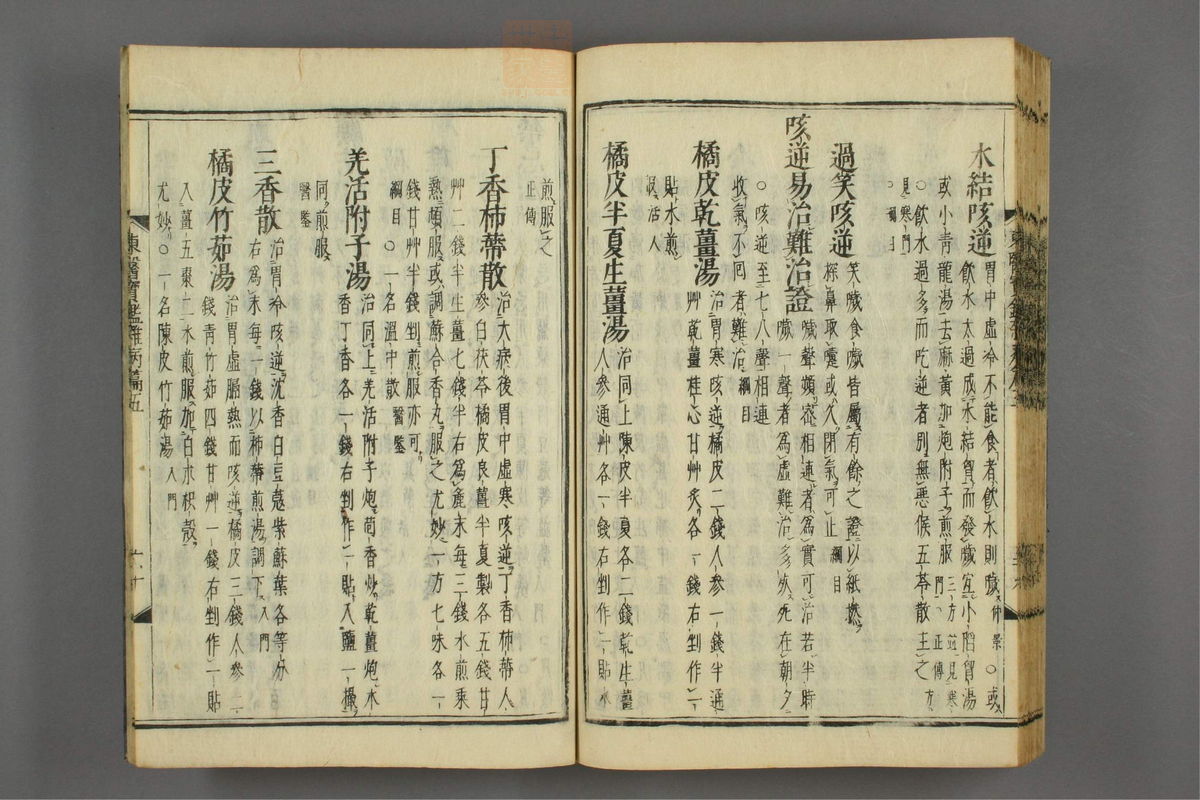 水結咳逆 胃中虛冷不能食者飮水則咳 仲景 ○或
飮水太過成水結胷而發噦宜小陷胷湯
或小靑龍湯去麻黃加炮附子煎服 三方並見寒門 ○正傳
○飮水過多而吃逆者別無惡候五苓散主之 方見寒門
○綱目
過笑咳逆 笑噦食噦皆屬有餘之證以紙撚
探鼻取嚔或久閉氣可止 綱目
咳逆易治難治證 噦聲頻密相連者爲實可治若半時
噦一聲者爲虛難治多死在朝夕
○咳逆至七八聲相連
收氣不回者難治 綱目
橘皮乾薑湯 治胃寒咳逆橘皮二錢人參一錢半通
艸乾薑桂心甘艸炙各一錢右剉作一
貼水煎
服 活人
橘皮半夏生薑湯 治同上陳皮半夏各二錢乾生薑
人參通艸各一錢右剉作一貼水
煎服之
正傳
丁香柿蒂散 治大病後胃中虛寒咳逆丁香柿蒂人
參白茯苓橘皮良薑半夏製各五錢甘
艸二錢半生薑七錢半右爲麁末每三錢水煎乘
熱頓服或調蘇合香丸服之尤妙一方七味各一
錢甘艸半錢剉煎服亦可
綱目 ○一名溫中散 醫鑒
羌活附子湯 治同上羌活附子炮茴香炒乾薑炮木
香丁香各一錢右剉作一貼入鹽一撮
同煎服
醫鑒
三香散 治胃冷咳逆沈香白豆蔲紫蘇葉各等分
右爲末每一錢以柿蒂煎湯調下 入門
橘皮竹茹湯 治胃虛膈熱而咳逆橘皮三錢人參二
錢靑竹茹四錢甘艸一錢右剉作一貼
入薑五棗二水煎服加白朮枳殼
尤妙 ○一名陳皮竹茹湯 入門
東醫寶鑑雜病篇五